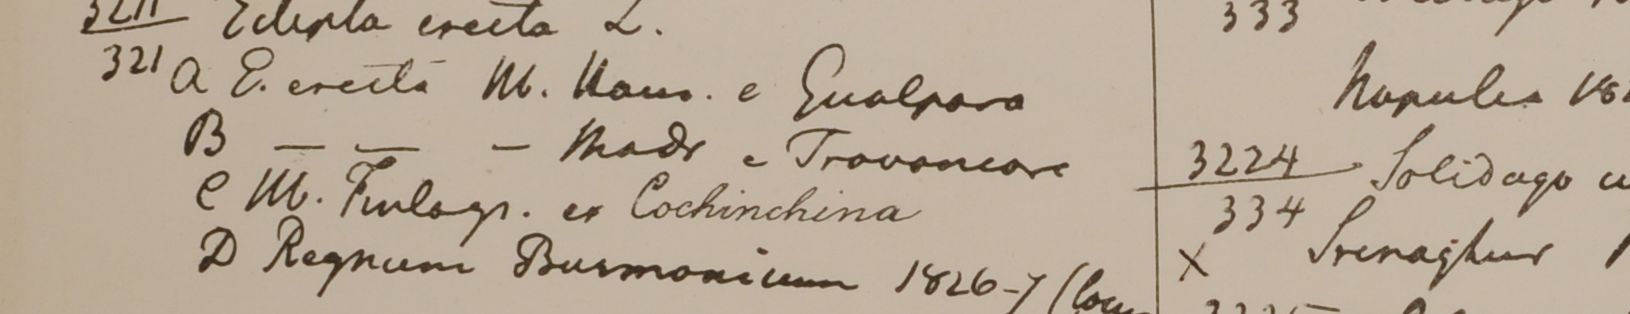 3211 Eclipta erecta L.
321
A E. erecta M. Ham. e Gualpara
B — — — Madr e Travancore
C M. Finlays. ex Cochinchina
D Regnum Burmanicum 1826-7 (locu
333
Napulea 18
3224 Solidago
334
Srenaghur
X